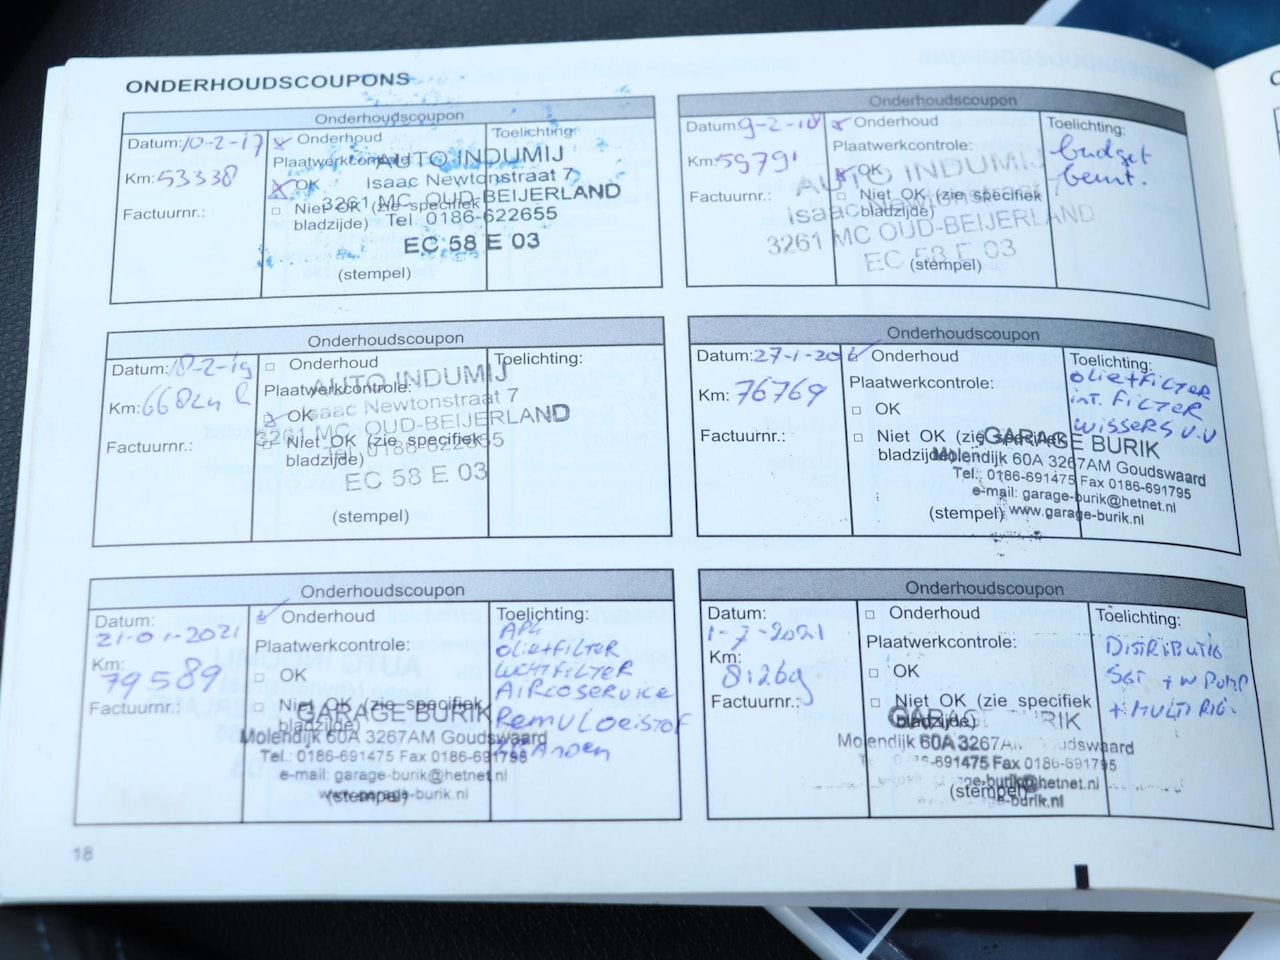 ONDERHOUDSCOUPONS
Onderhoudscoupon
Datum: 10-2-17
Km: 53338
Factuurnr.:
Onderhoud
Plaatwerkcontrole:
OK
Niet OK (zie specifiek
bladzijde)
(stempel)
Toelichting:
AUTO INDUMIJ
Isaac Newtonstraat 7
3261 MC OUD-BEIJERLAND
Tel. 0186-622655
EC 58 E 03
Onderhoudscoupon
Datum: 9-2-18
Km: 59791
Factuurnr.:
Onderhoud
Plaatwerkcontrole:
OK
Niet OK (zie specifiek
bladzijde)
(stempel)
Toelichting:
budget
beurt.
AUTO INDUMIJ
Isaac Newtonstraat 7
3261 MC OUD-BEIJERLAND
EC 58 E 03
Onderhoudscoupon
Datum: 18-2-19
Km:
Factuurnr.:
Onderhoud
Plaatwerkcontrole:
OK
Niet OK (zie specifiek
bladzijde)
(stempel)
Toelichting:
AUTO INDUMIJ
Isaac Newtonstraat 7
3261 MC OUD-BEIJERLAND
Tel. 0186-622655
EC 58 E 03
Onderhoudscoupon
Datum: 27-1-20
Km: 76769
Factuurnr.:
Onderhoud
Plaatwerkcontrole:
OK
Niet OK (zie specifiek
bladzijde)
(stempel)
Toelichting:
OLIE+FILTER
INT. FILTER
WISSERS V.V
GARAGE BURIK
Molendijk 60A 3267AM Goudswaard
Tel.: 0186-691475 Fax 0186-691795
e-mail: garage-burik@hetnet.nl
www.garage-burik.nl
Onderhoudscoupon
Datum:
21-01-2021
Km:
79589
Factuurnr.:
Onderhoud
Plaatwerkcontrole:
OK
Niet OK (zie specifiek
bladzijde)
(stempel)
Toelichting:
APK
OLIE+FILTER
LUCHTFILTER
AIRCOSERVICE
REMVLOEISTOF
GARAGE BURIK
Molendijk 60A 3267AM Goudswaard
Tel.: 0186-691475 Fax 0186-691795
e-mail: garage-burik@hetnet.nl
www.garage-burik.nl
Onderhoudscoupon
Datum:
1-7-2021
Km:
81269
Factuurnr.:
Onderhoud
Plaatwerkcontrole:
OK
Niet OK (zie specifiek
bladzijde)
(stempel)
Toelichting:
DISTRIBUTIE
SET + W POMP
+ MULTI RIE.
GARAGE BURIK
Molendijk 60A 3267AM Goudswaard
-691475 Fax 0186-691795
garage-burik@hetnet.nl
garage-burik.nl
18